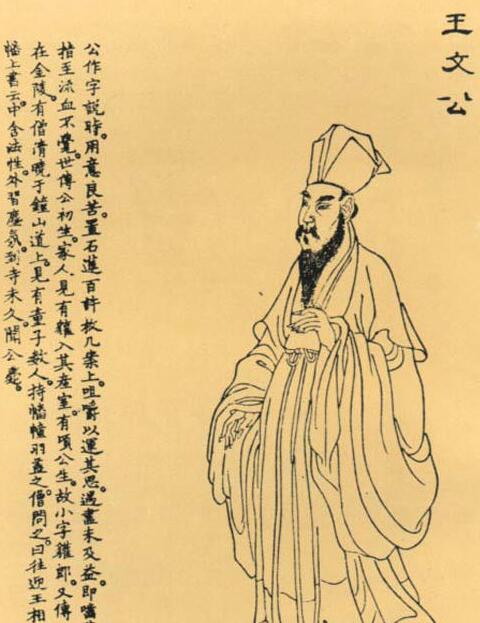 王文公
公作字說時。用意良苦。置石蓮百許枚几案上咀嚼以運其思。遇盡未及益。即嚙
指至流血不覺。世傳公初生。家人見有獾入其產室。有頃公生。故小字獾郎。又傳
在金陵有僧清曉于鐘山道上。見有童子數人。持幡幢羽蓋之。僧問之。曰往迎王相
幡上書云。中含法性。外習塵氛。到寺未久。聞公薨。